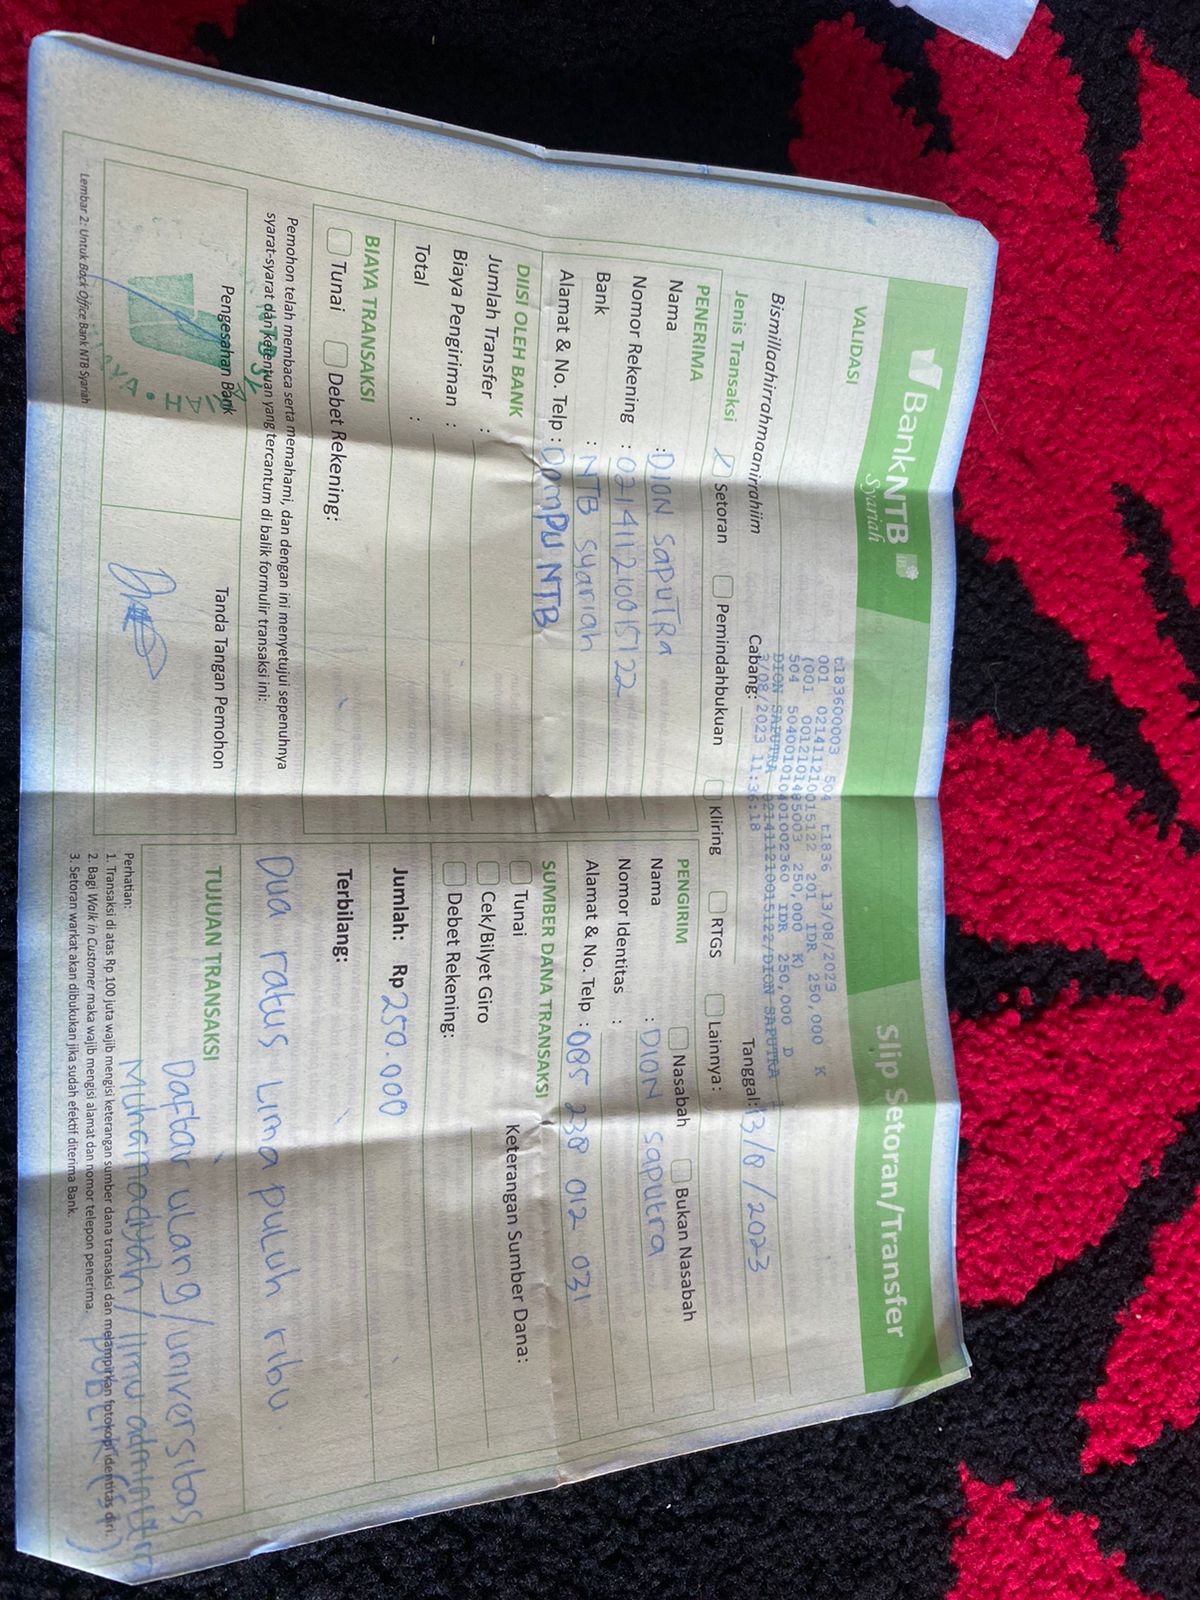 BankNTB Syariah
Slip Setoran/Transfer
VALIDASI
t183600003 504 t1836 13/08/2023
001 021411210015122 201 IDR 250,000 K
(001 0012101485003 250,000 K)
504 504001010401002360 IDR 250,000 D
DION SAPUTRA 021411210015122/DION SAPUTRA
3/08/2023 11:36:18
Bismillaahirrahmaanirrahiim
Cabang:
Tanggal: 13/8/2023
Jenis Transaksi Setoran Pemindahbukuan Kliring RTGS Lainnya:
PENERIMA
Nama : DION SapuTRa
Nomor Rekening : 021411210015122
Bank : NTB Syariah
Alamat & No. Telp : Dompu NTB
PENGIRIM Nasabah Bukan Nasabah
Nama : DION Saputra
Nomor Identitas :
Alamat & No. Telp : 085 238 012 031
DIISI OLEH BANK
Jumlah Transfer :
Biaya Pengiriman :
Total :
SUMBER DANA TRANSAKSI
Keterangan Sumber Dana:
Tunai
Cek/Bilyet Giro
Debet Rekening:
BIAYA TRANSAKSI
Tunai Debet Rekening:
Jumlah: Rp 250.000
Terbilang:
Dua ratus Lima puluh ribu.
Pemohon telah membaca serta memahami, dan dengan ini menyetujui sepenuhnya
syarat-syarat dan ketentuan yang tercantum di balik formulir transaksi ini:
Pengesahan Bank
Tanda Tangan Pemohon
TUJUAN TRANSAKSI
Daftar ulang/universitas
Muhamadiyah/Ilmu
PUBLIK (S1)
Perhatian:
1. Transaksi di atas Rp 100 juta wajib mengisi keterangan sumber dana transaksi dan melampirkan fotokopi identitas diri.
2. Bagi Walk in Customer maka wajib mengisi alamat dan nomor telepon penerima.
3. Setoran warkat akan dibukukan jika sudah efektif diterima Bank.
Lembar 2: Untuk Back Office Bank NTB Syariah